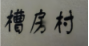 槽房村